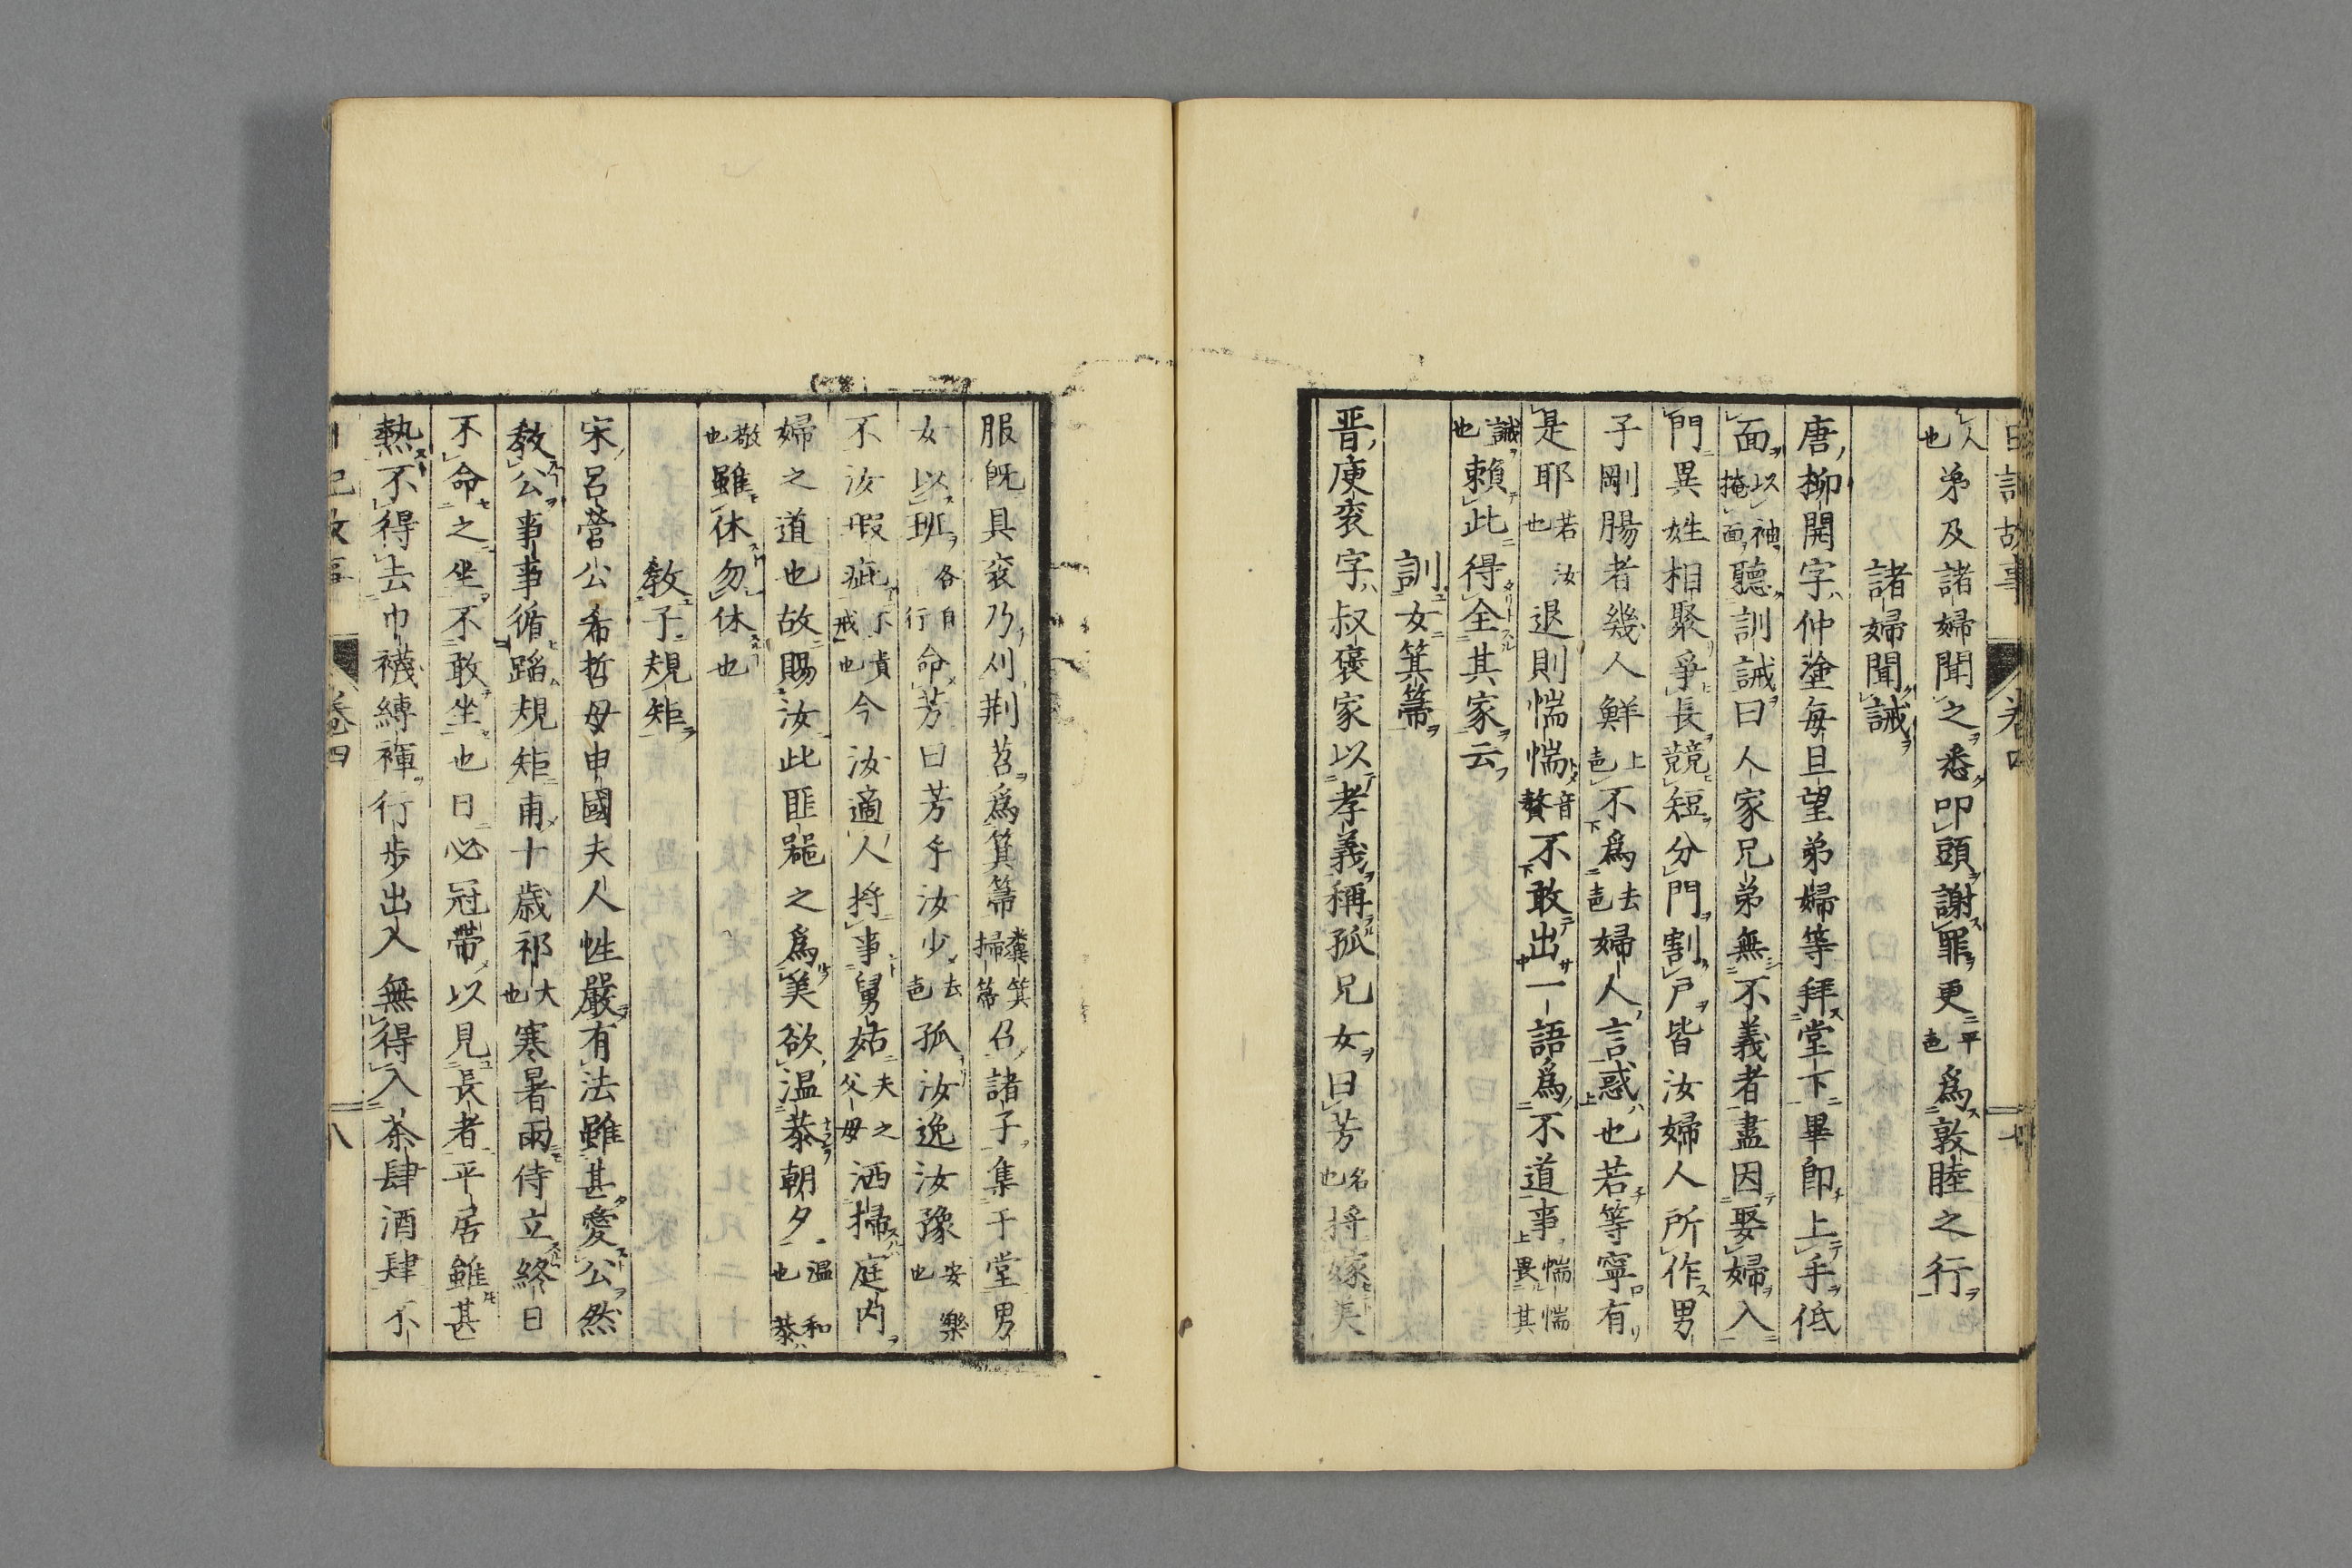 日記故事 卷四 七
人也弟及諸婦聞之悉叩頭謝罪更平声爲敦睦之行
諸婦聞誡
唐柳開字仲塗每旦望弟婦等拜堂下畢即上手低
面以袖掩面聽訓誡曰人家兄弟無不義者盡因娶婦入
門異姓相聚爭長競短分門割戶皆汝婦人所作男
子剛腸者幾人鮮上声不爲去声婦人言惑也若等寧有
是耶若汝也退則惴惴音贅不敢出一語爲不道事惴惴畏其
誡也賴此得全其家云
訓女箕箒
晋庾袞字叔褒家以孝義稱孤兄女曰芳名也将嫁美
服既具袞乃刈荆苕爲箕箒糞箕掃箒召諸子集于堂男
女以班各自行命芳曰芳乎汝少去声孤汝逸汝豫安樂也
不汝瑕疵不責戒也今汝適人将事舅姑夫之父母洒掃庭内
婦之道也故賜汝此匪器之爲美欲温恭朝夕温和也恭
敬也雖休勿休也
教子規矩
宋呂滎公希哲母申國夫人性嚴有法雖甚愛公然
教公事事循蹈規矩甫十歳祁大也寒暑雨侍立終日
不命之坐不敢坐也日必冠帶以見長者平居雖甚
熱不得去巾襪縛褌行步出入無得入茶肆酒肆不
日記故事 卷四 八